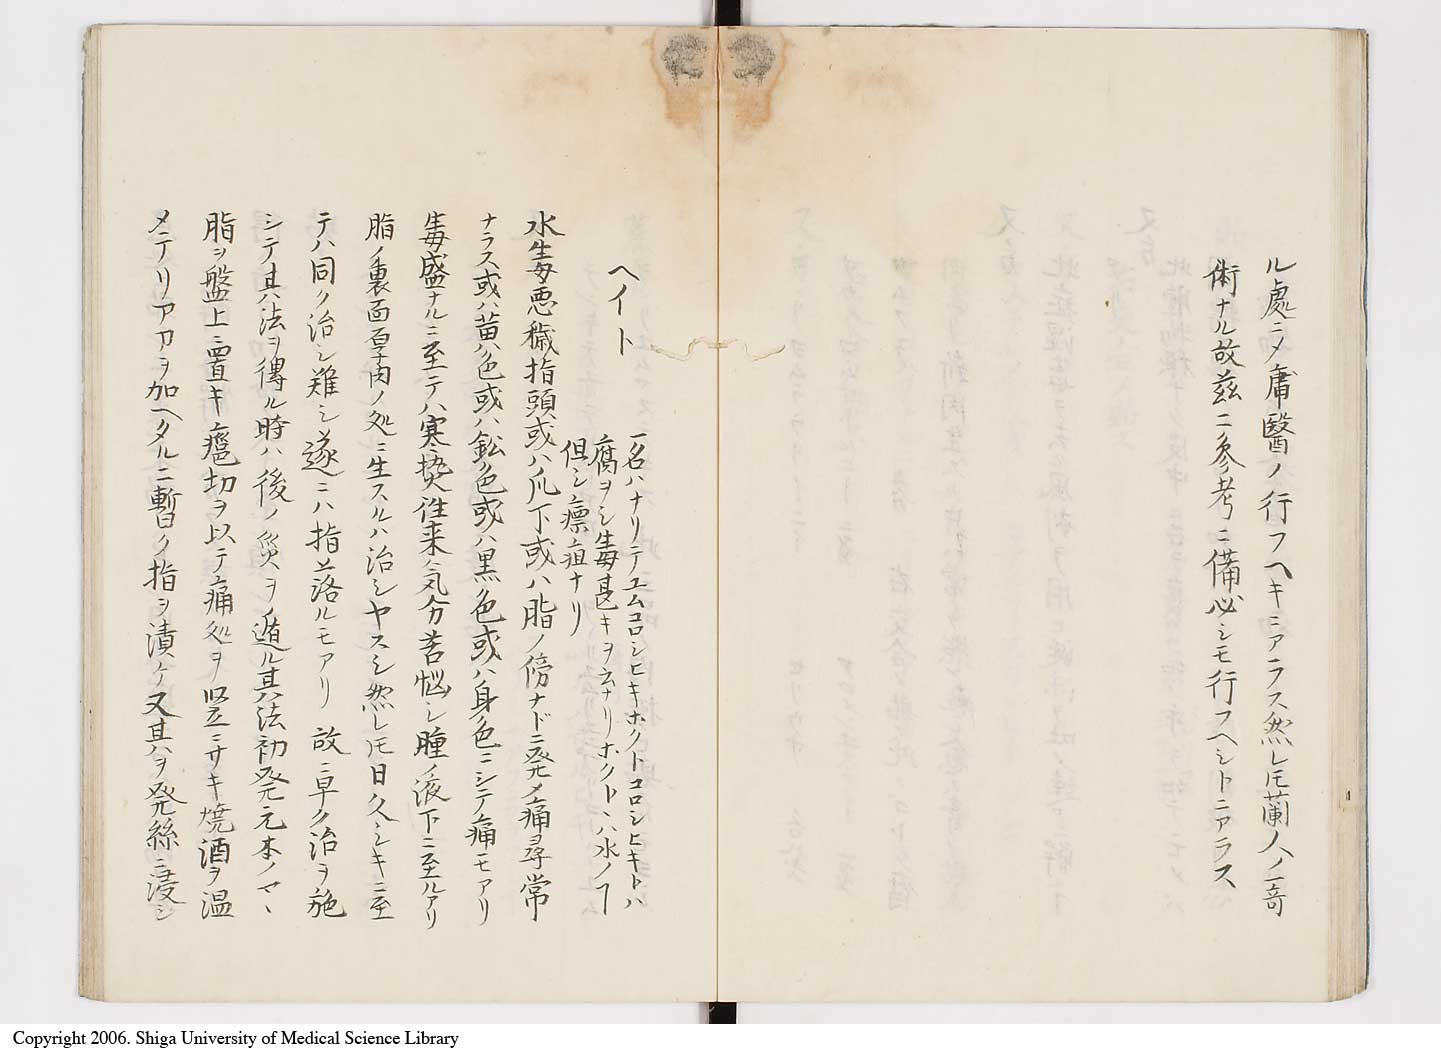 ル處ニメ庸醫ノ行フヘキニアラス然レ𪜈蘭人ノ一奇
術ナル故茲ニ參考ニ備必シモ行フヘシトニアラス
ヘイト
一名ハナリテエムコロンヒキホクトコロンヒキトハ
腐ヲシ毒甚キヲ云ナリホクトハ水ノヿ
但シ瘭疽ナリ
水毒悪穢指頭或ハ爪下或ハ脂ノ傍ナドニ発メ痛尋常
ナラス或ハ黄色或ハ鉛色或ハ黒色或ハ身色ニシテ痛モアリ
毒盛ナルニ至テハ寒熱往来気分苦悩シ腫ノ液下ニ至ルアリ
脂ノ裏面厚肉ノ処ニ生スルハ治シヤスシ然レ𪜈日久シキニ至
テハ同ク治シ難シ遂ニハ指落ルモアリ故ニ早ク治ヲ施
シテ其法ヲ傳ル時ハ後ノ災ヲ遁ル其法初発元本ノマヽ
脂ヲ盤上ニ置キ癰切ヲ以テ痛処ヲ竪ニサキ焼酒ヲ温
メテリアカヲ加ヘタルニ暫ク指ヲ漬ケ又其ハヲ発絲ニ浸シ
Copyright 2006. Shiga University of Medical Science Library